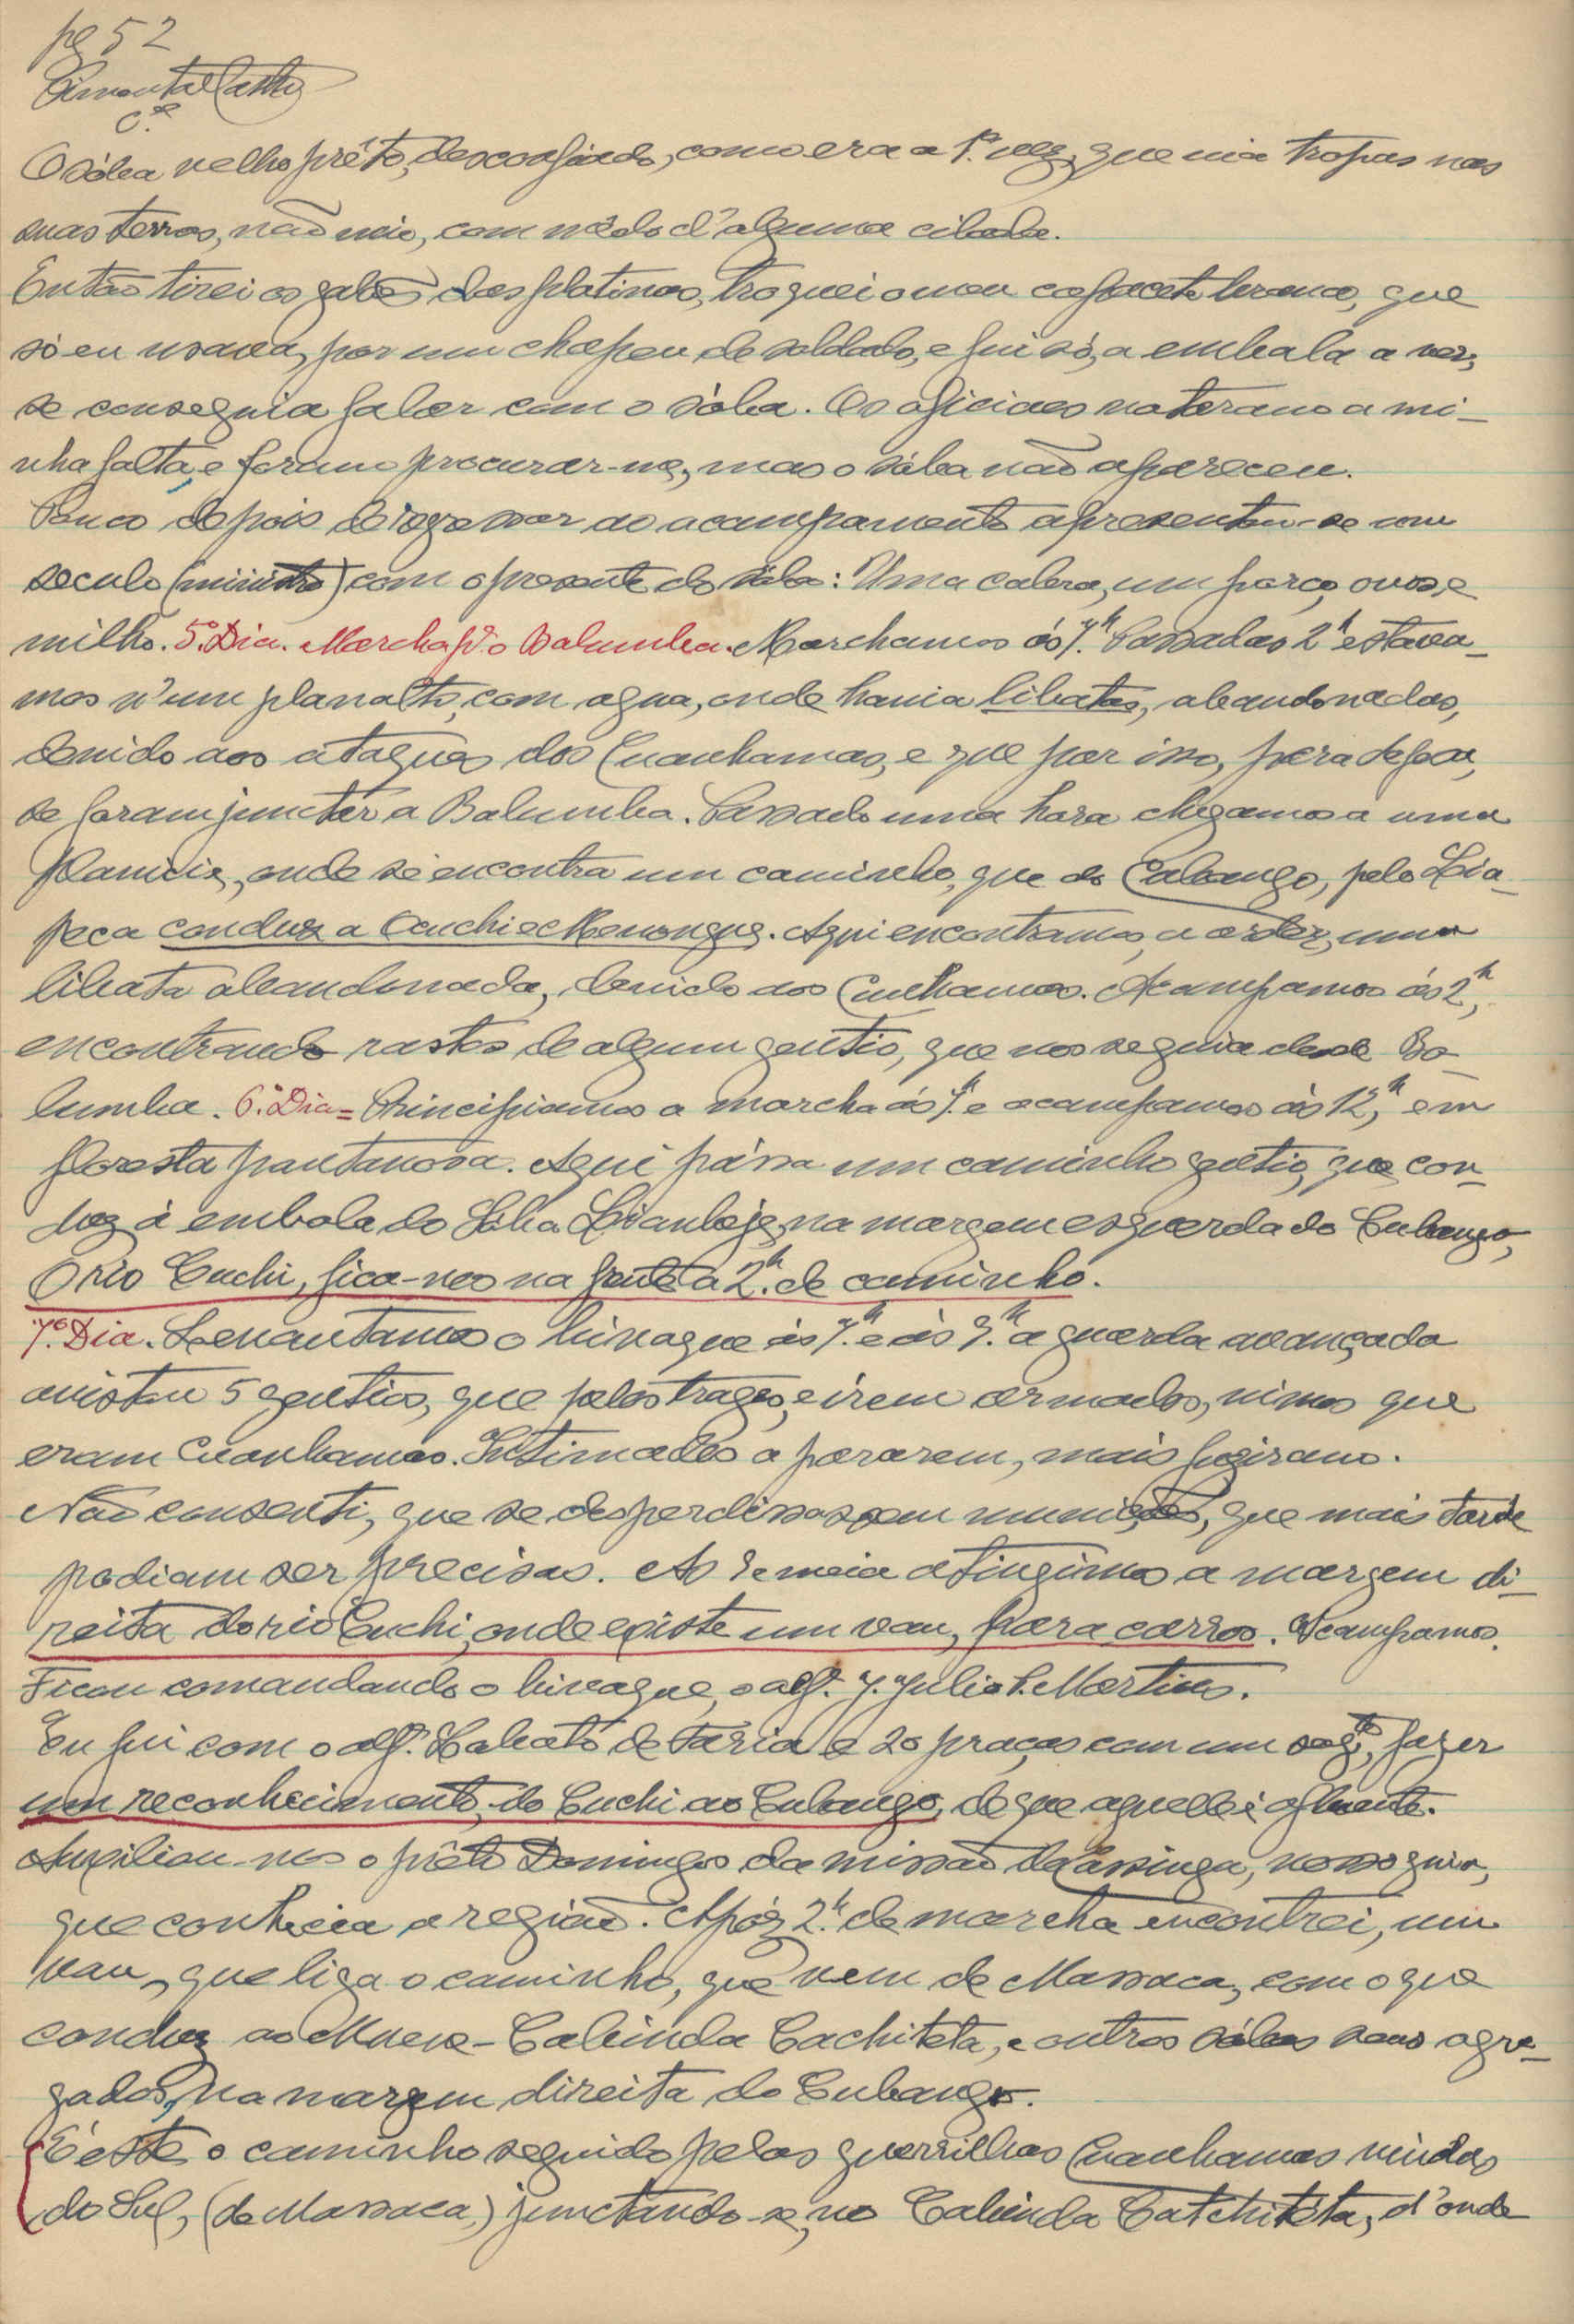 pg 52
Pimentel Castro
C.el
O sóba velho prêto, desconfiado, como era a 1.ª vez, que via tropas nas
suas terras, não veio, com mêdo d'alguma cilada.
Então tirei os galões das platinas, troquei o meu capacete branco, que
só eu usava, por um chapeu de soldado, e fui só, a embala a ver,
se conseguia falar com o sóba. Os oficiaes notaram a mi-
nha falta, e foram procurar-me, mas o sóba não apareceu.
Pouco depois de regressar ao acampamento apresentou-se um
seculo (ministro) com o presente do sóba: Uma cabra, um porco, ovos, e
milho. 5.º Dia. Marcha p.ª o Balumba. Marchamos ás 7.h Passadas 2h estava-
mos n'um planalto, com agua, onde havia libatas, abandonadas,
devido aos ataques dos Cuanhamas, e que por isso, para defeza,
se foram junctar a Balumba. Passado uma hora chegamos a uma
planicie, onde se encontra um caminho, que do Cubango, pelo Lia-
peca conduz a Cuchi e Menongue. Aqui encontramos, a arder, uma
libata abandonada, devido aos Cunhamas. Acampamos ás 2h,
encontrando rastos de algum gentio, que nos seguia desde Ba-
lumba. 6.º Dia = Principiamos a marcha ás 7.h e acampamos ás 12h, em
floresta pantanosa. Aqui pássa um caminho gentio, que con-
duz á embala do Soba Liambeje, na margem esquerda do Cubango,
O rio Cuchi, fica-nos na frente a 2h. de caminho.
7.º Dia. Levantamos o bivaque ás 7.h e ás 9.h a guarda avançada
avistou 5 gentios, que pelos trages, e irem armados, vimos que
eram Cuanhamas. Intimados a pararem, mais fugiram.
Não consenti, que se desperdissassem munições, que mais tarde
podiam ser precisas. As 9 e meia atingimos a margem di-
reita do rio Cuchi, onde existe um vau, para carros. Acampamos.
Ficou comandando o bivaque, o alf. J. Julio S. Martins.
Eu fui com o alf. Lobato de Faria e 20 praças com um sargto, fazer
um reconhecimento, do Cuchi ao Cubango, de que aquelle é afluente.
Auxiliou-nos o prêto Domingos da missão da Cassinga, nosso guia,
que conhecia a região. Após 2.h de marcha encontrei, um
vau, que liga o caminho, que vem de Massaca, com o que
conduz ao Muene-Cabinda Cachiteta, e outros sóbas seus agre-
gados, na margem direita do Cubango.
É este o caminho seguido pelas guerrilhas Cuanhamas vindas
do Sul, (de Massaca,) junctando-se, no Cabinda Catchitéta, d'onde